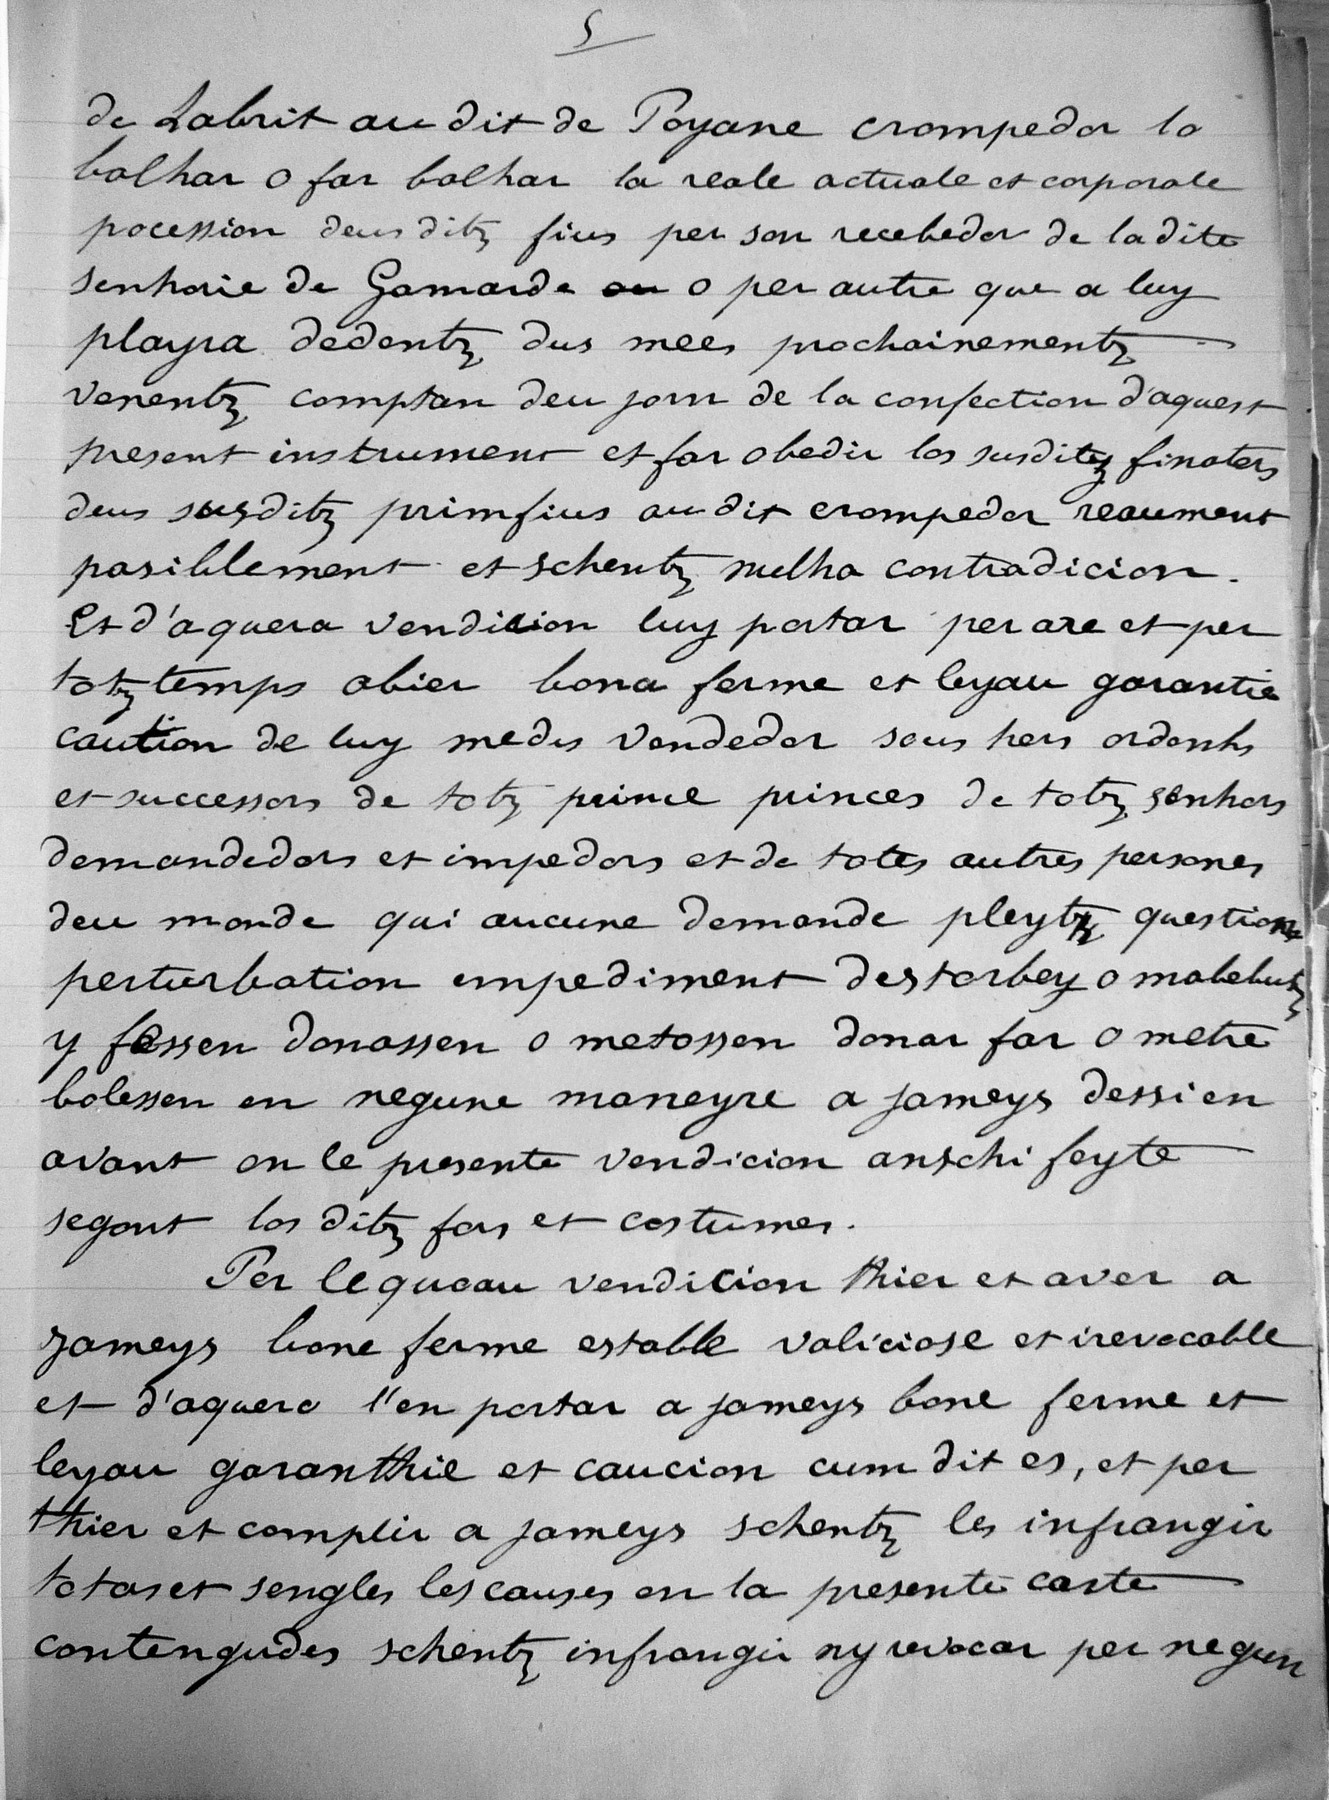 5
de Labrit au dit de Poyane crompedor lo
balhar o far balhar la reale actuale et corporale
pocession deus ditz fius per son recebedor de la dite
senhorie de Gamarde ou o per autre que a luy
playra dedentz dus mees prochainementz
venentz comptan deu jorn de la confection d'aquest
present instrument et far obedir los susditz finaters
deus susditz primfius au dit crompedor reaument
pasiblement et schentz nulha contradicion.
Et d'aquera vendicion luy portar per are et per
totz temps abier bona ferme et leyau garantie
caution de luy medis vendedor sous hers ordenhs
et successors de totz prince princes de totz senhors
demandedors et impedors et de totes autres persones
deu monde qui aucune demande pleytz question
perturbation empediment destorbey o malebutz
y fessen donassen o metossen donar far o metre
bolessen en negune maneyre a jameys dessi en
avant en le presente vendicion anschi feyte
segont los ditz fors et costumes.
Per lequoau vendicion thier et aver a
jameys bone ferme estable valiciose et irevocable
et d'aquero l'en portar a jameys bone ferme et
leyau garanthie et caucion cum dit es, et per
thier et complir a jameys schentz les infrangir
totas et sengles les causes en la presente carte
contengudes schentz infrangir ny revocar per negun